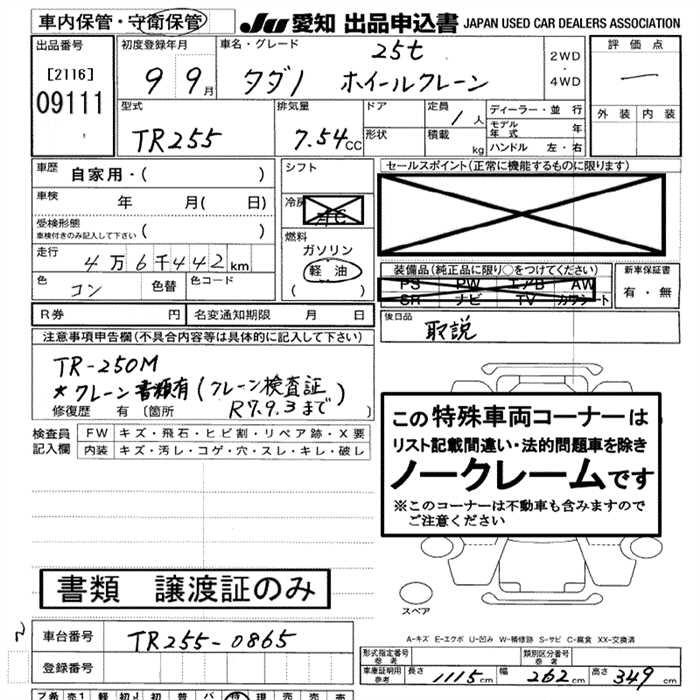 車内保管・守衛保管
JU 愛知 出品申込書 JAPAN USED CAR DEALERS ASSOCIATION
出品番号
[2116]
09111
初度登録年月
9 9月
車名・グレード
25t
タダノ ホイールクレーン
2WD
・
4WD
評価点
一
外装 内装
型式
TR255
排気量
7.54CC
ドア
形状
定員
1人
積載
kg
ディーラー・並行
モデル年式 年
ハンドル 左・右
車歴
自家用・( )
車検
年 月( 日)
受検形態
車検付きのみ記入して下さい ( )
走行
4万6千442km
色
コン
色替
色コード
シフト
冷房
AC
燃料
ガソリン
軽油
( )
セールスポイント(正常に機能するものに限ります)
装備品(純正品に限り○をつけてください)
PS PW エアB AW
SR ナビ TV カワシート
新車保証書
有・無
R券 円
名変通知期限 月 日
後日品
取説
注意事項申告欄(不具合内容等は具体的に記入して下さい)
TR-250M
*クレーン書類有(クレーン検査証
R7.9.3まで)
修復歴 有〔箇所 〕
検査員記入欄
FW キズ・飛石・ヒビ割・リペア跡・X要
内装 キズ・汚し・コゲ・穴・スレ・キレ・破し
この特殊車両コーナーは
リスト記載間違い・法的問題車を除き
ノークレームです
※このコーナーは不動車も含みますので
ご注意ください
書類 譲渡証のみ
スペア
A-キズ E-エクボ U-凹み W-補修跡 S-サビ C-腐食 XX-交換済
車台番号
TR255-0865
登録番号
形式指定番号
参考
類別区分番号
参考
車庫証明用
参考
長さ 1115cm 幅 262cm 高さ 349cm